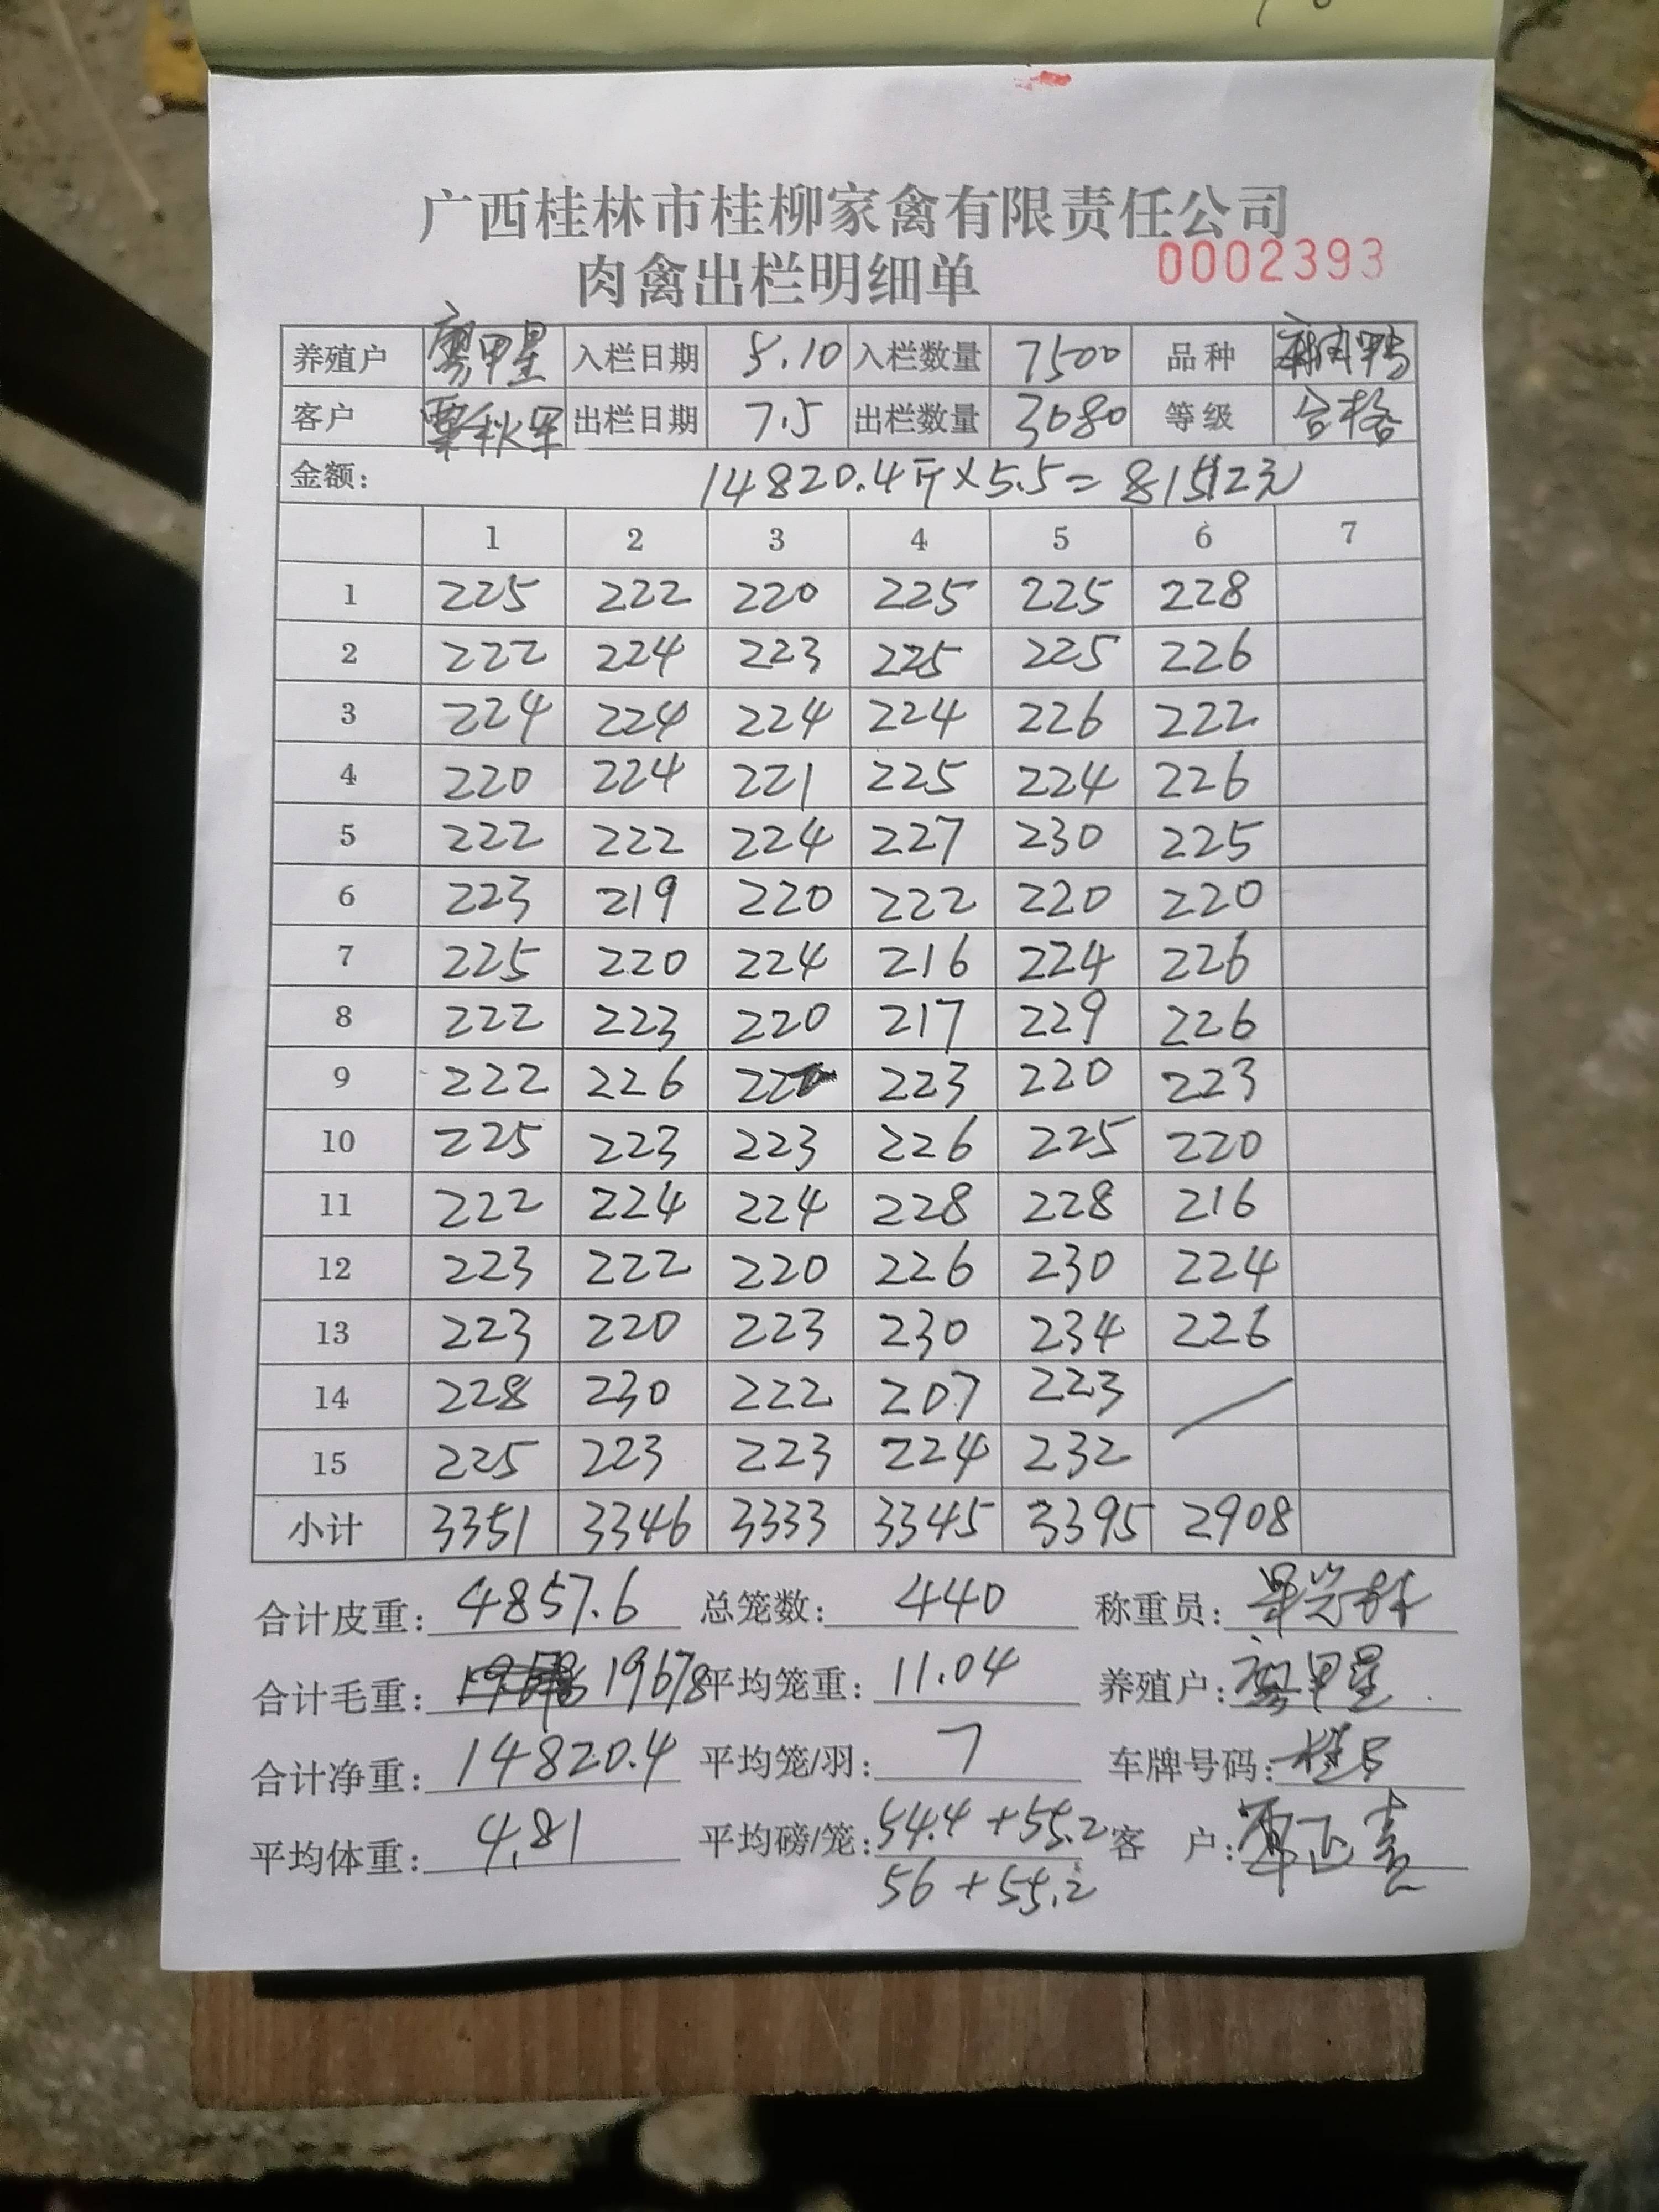 广西桂林市桂柳家禽有限责任公司
肉禽出栏明细单 0002393
养殖户 廖甲星 入栏日期 5.10 入栏数量 7500 品种
客户 覃秋军 出栏日期 7.5 出栏数量 3080 等级 合格
金额: 14820.4斤×5.5=81512元
1 2 3 4 5 6 7
1 225 222 220 225 225 228
2 222 224 223 225 225 226
3 224 224 224 224 226 222
4 220 224 221 225 224 226
5 222 222 224 227 230 225
6 223 219 220 222 220 220
7 225 220 224 216 224 226
8 222 223 220 217 229 226
9 222 226 222 223 220 223
10 225 223 223 226 225 220
11 222 224 224 228 228 216
12 223 222 220 226 230 224
13 223 220 223 230 234 226
14 228 230 222 207 223
15 225 223 223 224 232
小计 3351 3346 3333 3345 3395 2908
合计皮重: 4857.6 总笼数: 440 称重员:
合计毛重: 19678 平均笼重: 11.04 养殖户: 廖甲星
合计净重: 14820.4 平均笼/羽: 7 车牌号码:
平均体重: 4.81 平均磅/笼: 54.4+55.2 客 户:
56+55.2